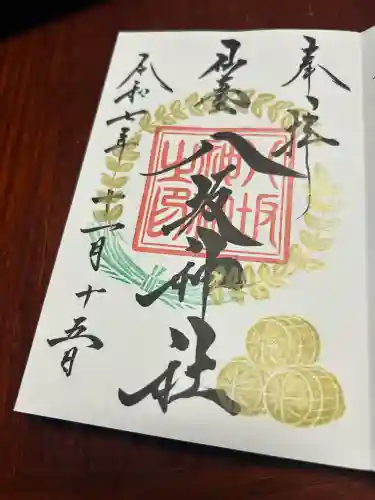 奉拝
仙臺
八坂神社
八坂
神社
之印
令和七年
十一月十五日